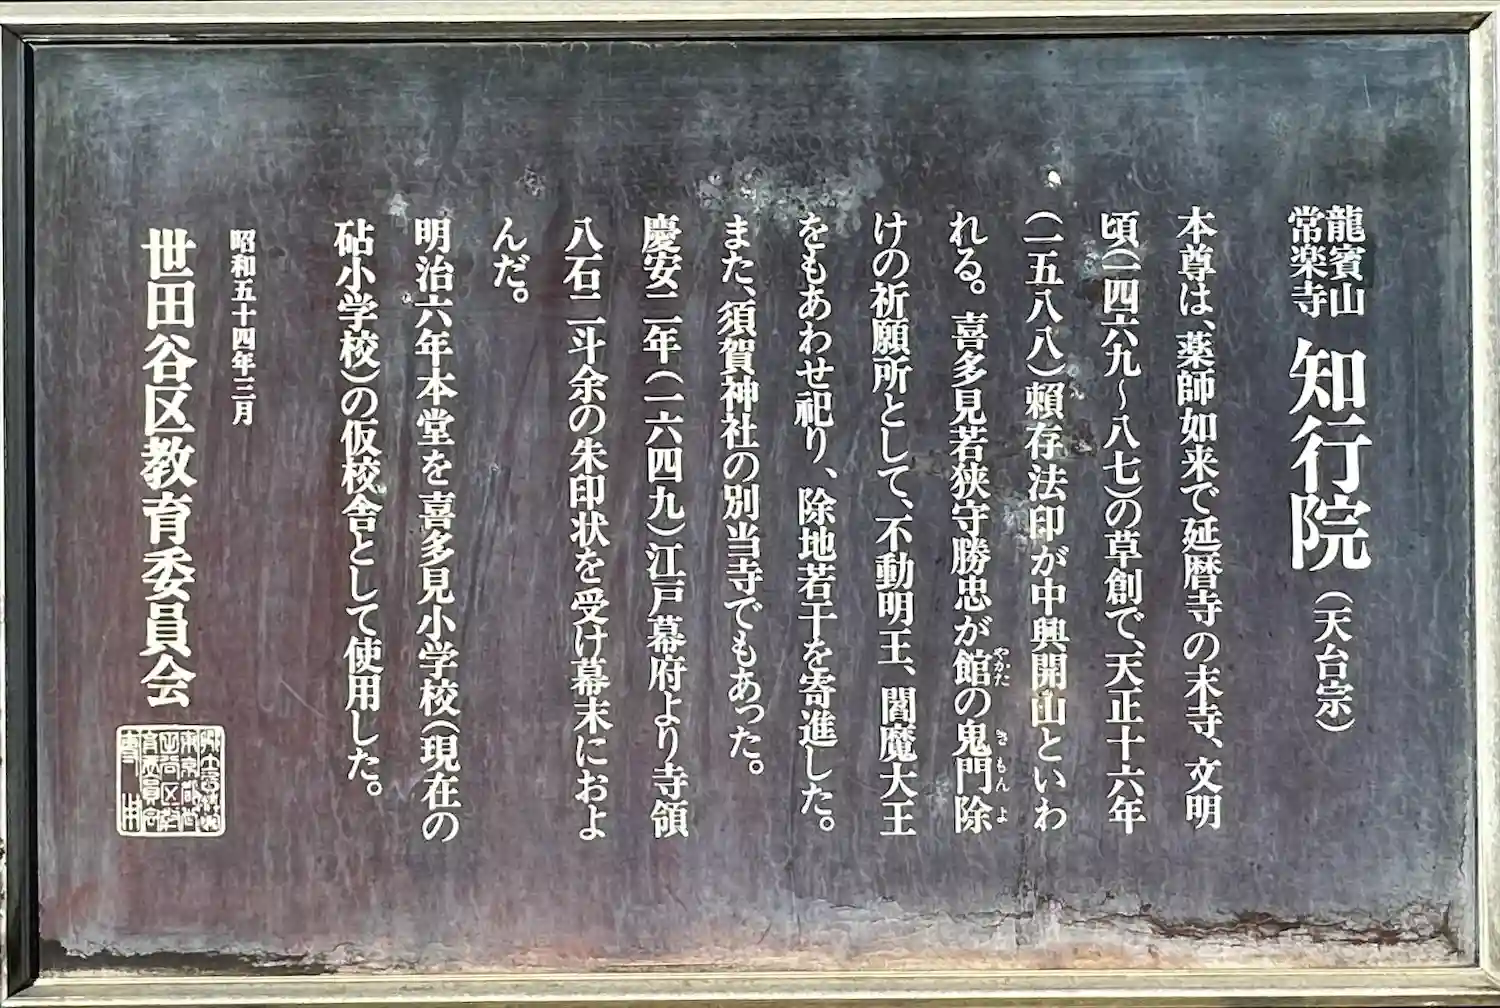 龍寳山
常楽寺
知行院（天台宗）
本尊は、薬師如来で延暦寺の末寺、文明
頃（一四六九～八七）の草創で、天正十六年
（一五八八）頼存法印が中興開山といわ
れる。喜多見若狭守勝忠が館の鬼門除
やかた
きもんよ
けの祈願所として、不動明王、閻魔大王
をもあわせ祀り、除地若干を寄進した。
また、須賀神社の別当寺でもあった。
慶安二年（一六四九）江戸幕府より寺領
八石二斗余の朱印状を受け幕末におよ
んだ。
明治六年本堂を喜多見小学校（現在の
砧小学校）の仮校舎として使用した。
昭和五十四年三月
世田谷区教育委員会